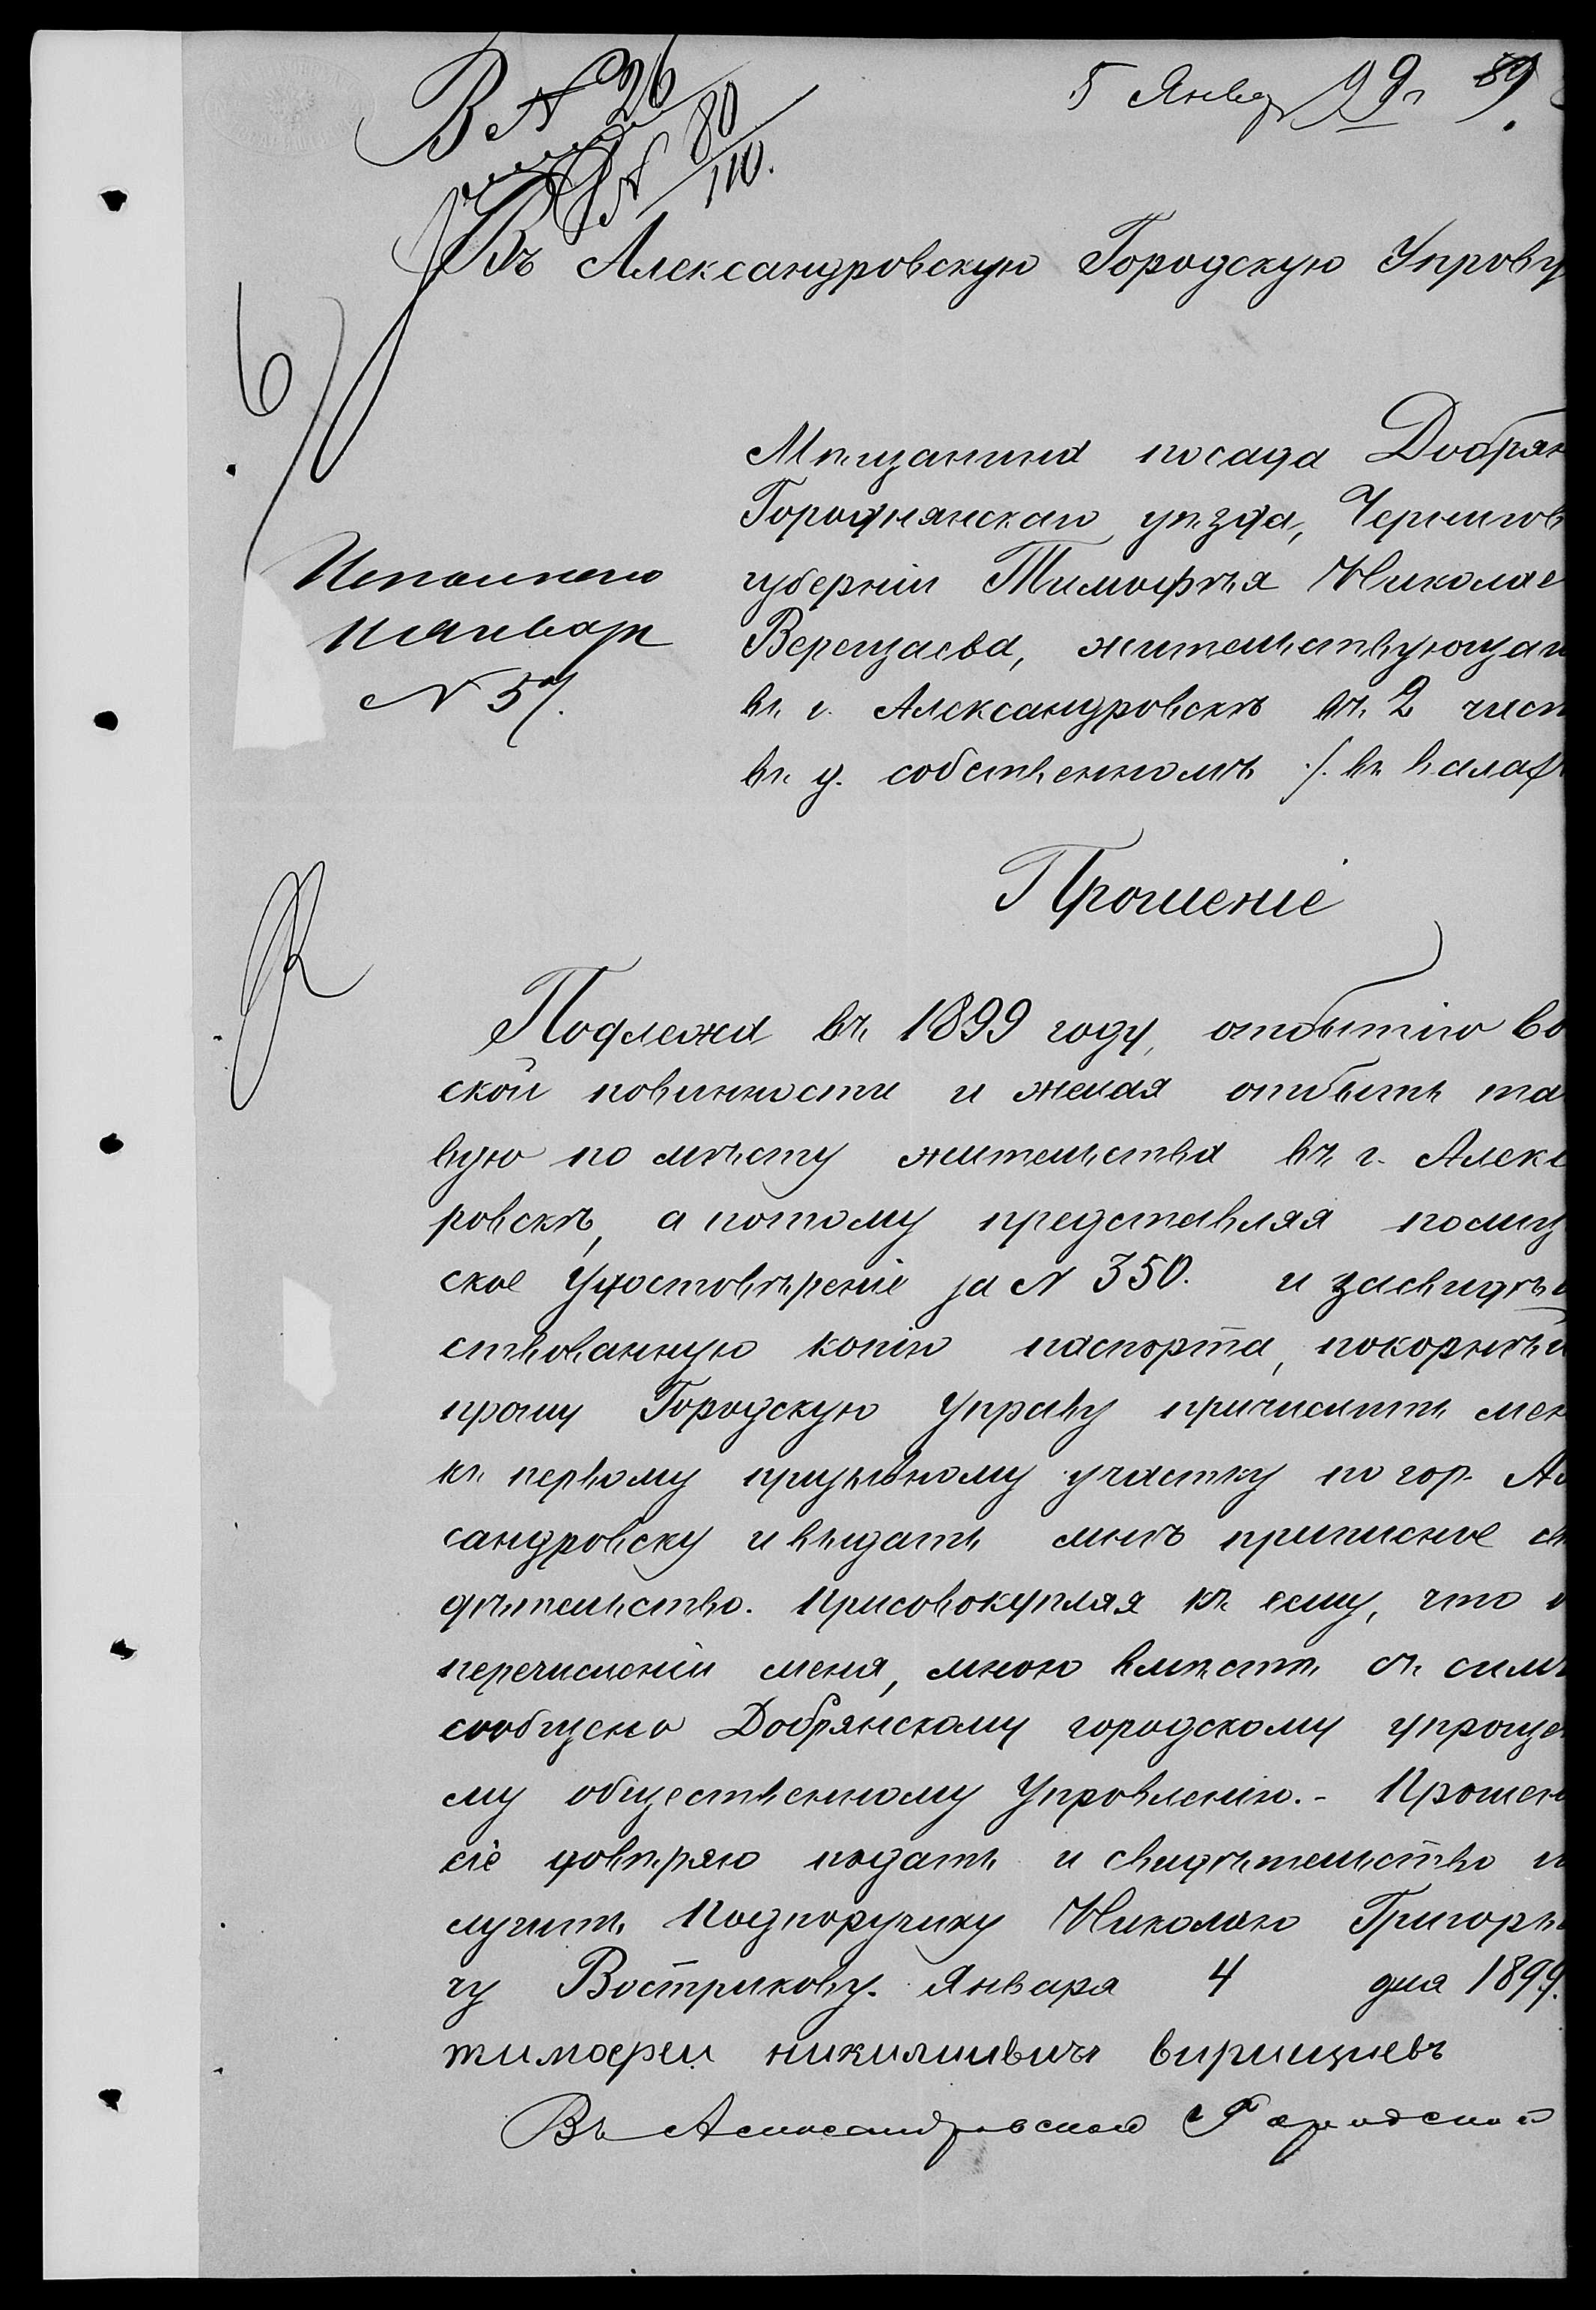 В № 26
№ 80/110.
5 Январ 99 г 89
Въ Александровскую Городскую Управу
Мѣщанина посада Добрян
Городнянскаго уѣзда, Чернигов
губерніи Тимофѣя Николае
Верещаева, жительствующаго
въ г. Александровскѣ въ 2 част
въ д. собственномъ
Исполнено
11 Январ
№ 57.
Прошеніе
Подлежа въ 1899 году, отбытію во
ской повинности и желая отбыть та
вую по мѣсту жительства въ г. Алекс
ровскѣ, а потому представляя полиц
ское Удостовѣреніе за № 350. и засвидѣт
ствованную копію паспорта, покорнѣй
прошу Городскую Управу причислить мен
къ первому призывному участку по гор. Ал
сандровску и выдать мнѣ приписное св
дѣтельство. Присовокупляя къ сему, что о
перечисленіи меня, мною вмѣстѣ съ симъ
сообщено Добрянскому городскому упрощен
му общественному Управленію.- Прошен
сіе довѣряю подать и свидѣтельство по
лучить Подпоручику Николаю Григорье
чу Вострикову. Января 4 дня 1899.
тимофеи никилаивичъ вирищиевъ
Въ Александровской Городской